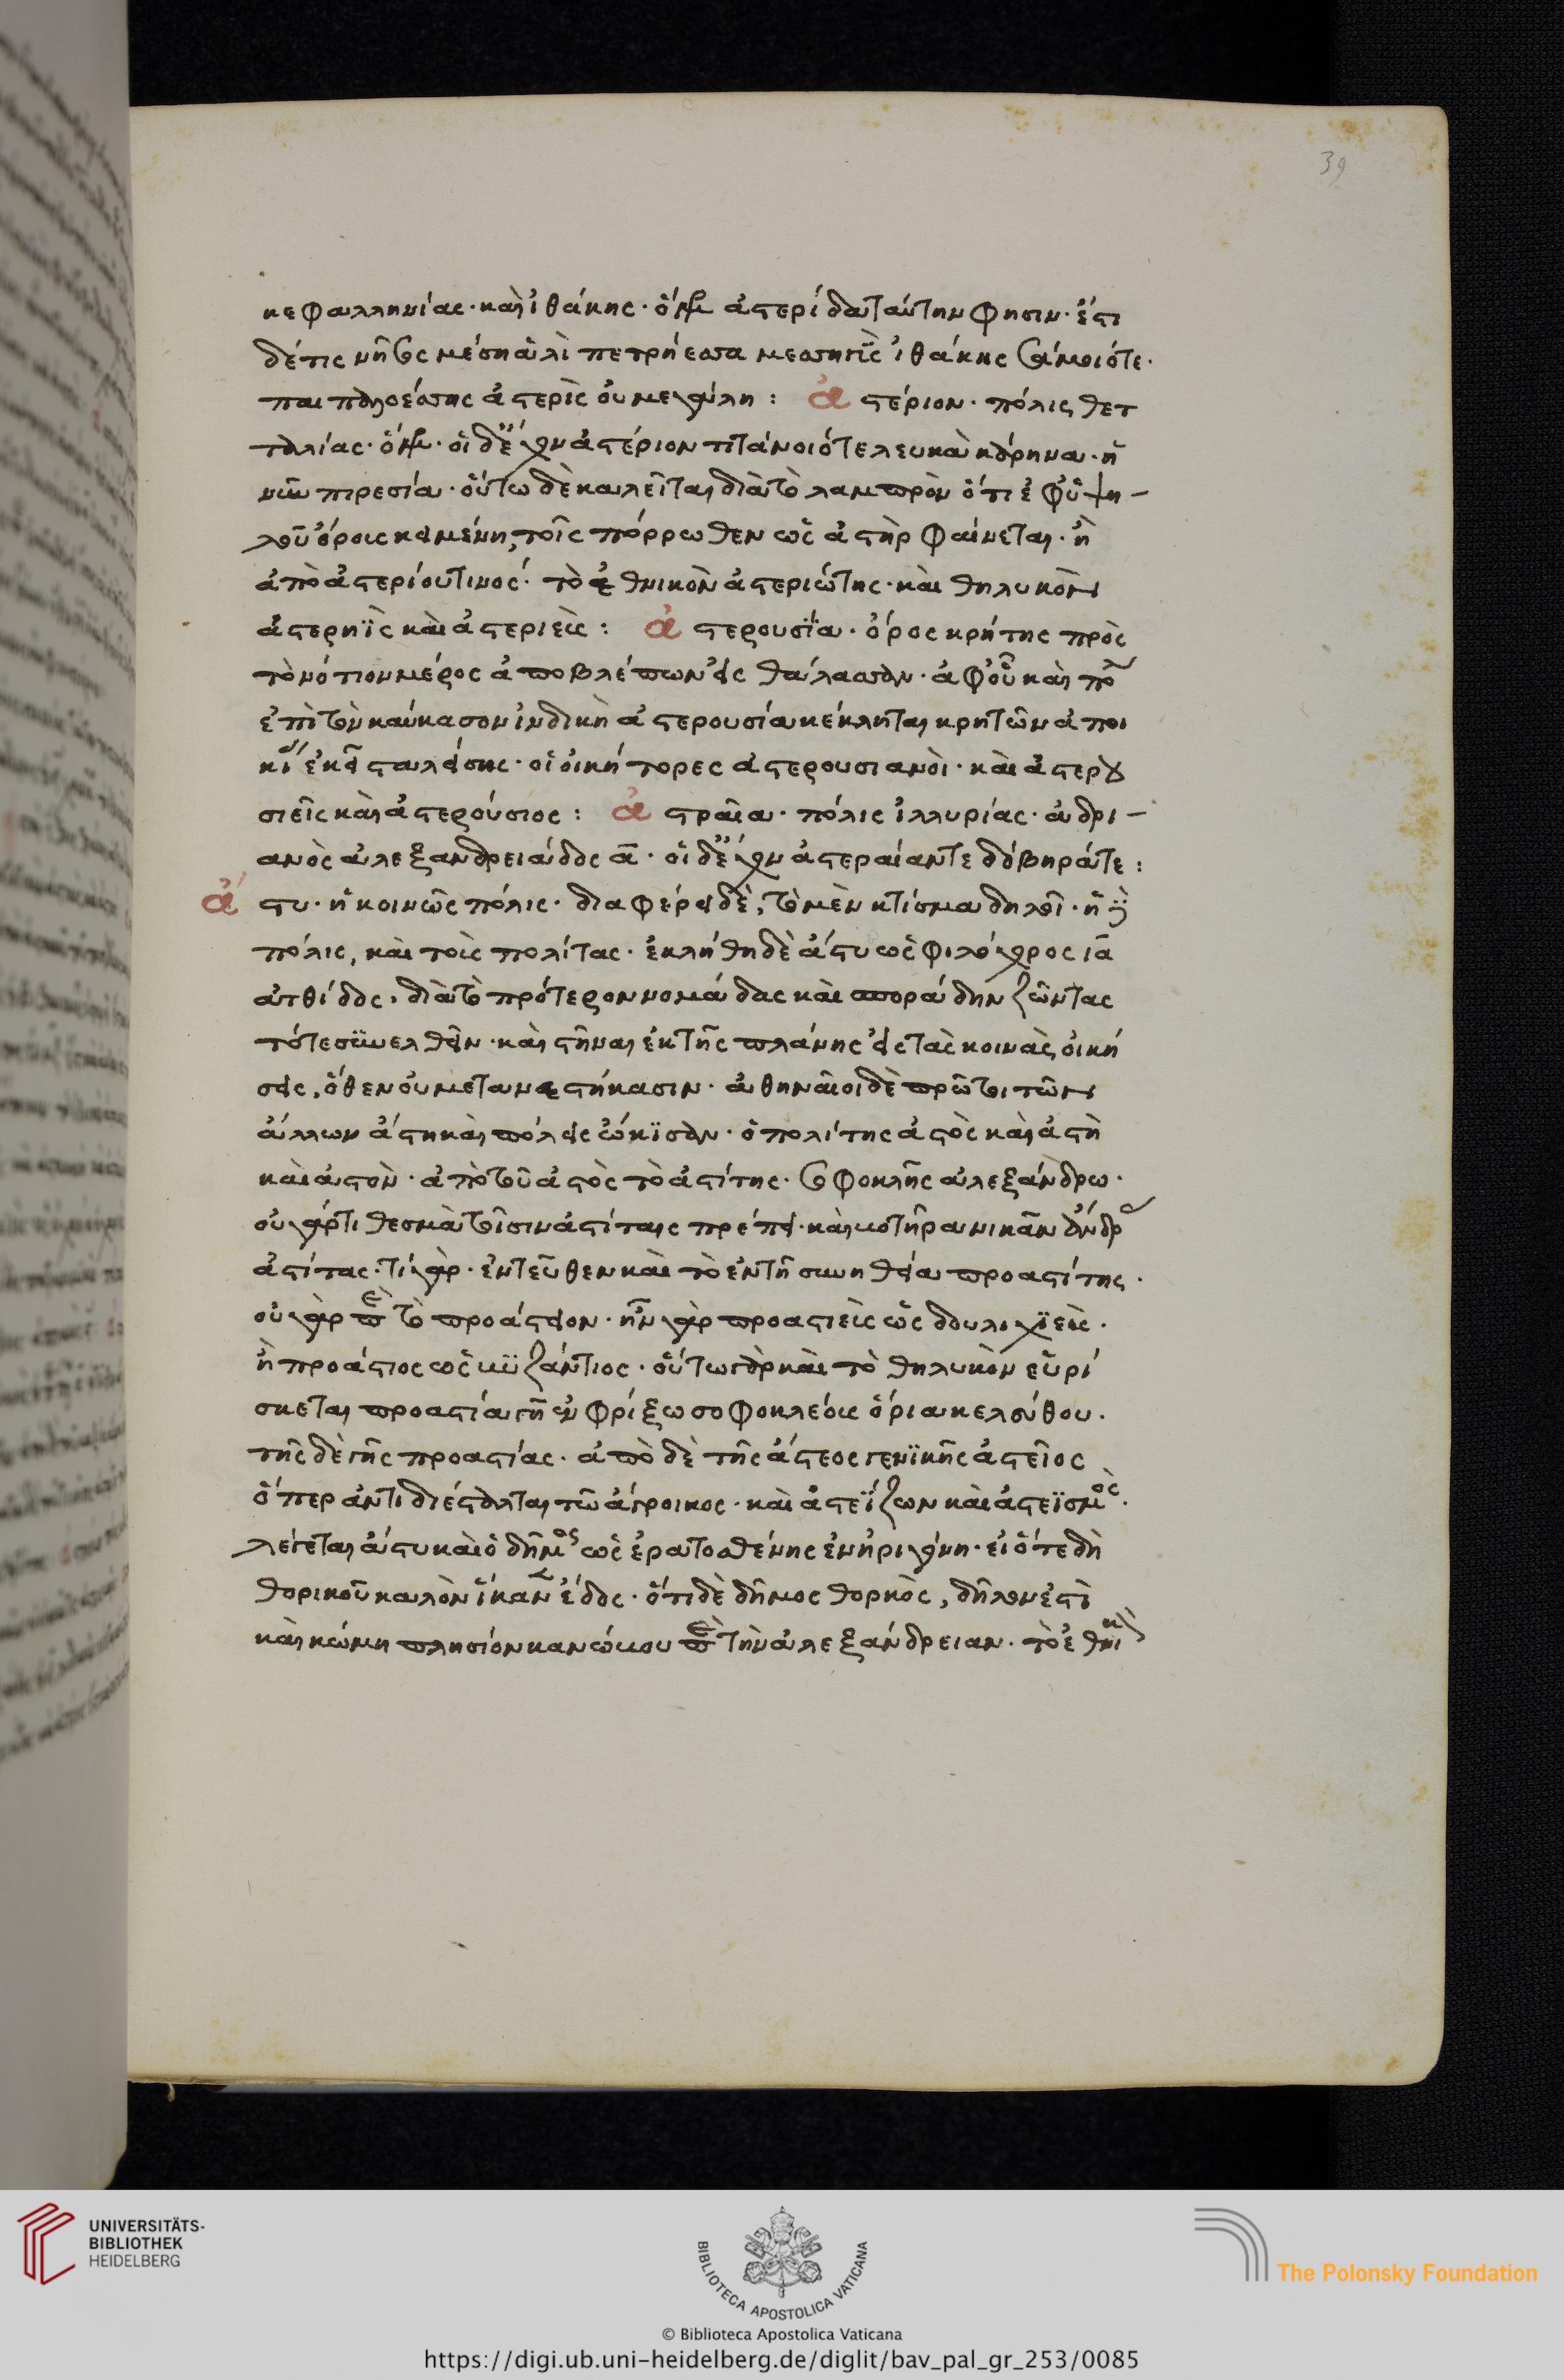 39
κεφαλληνίας· καὶ ἰθάκης· ὅμηρ ἀστερίδα ταύτην φησιν· ἔστι
δέ τις νῆσος μέσηἁλὶ πετρήεσσα μεσσηγῒς ἰθάκης σάμοιό τε·
παιπαλοέσσης ἀστερὶς οὐ μεγάλη: ἀστέριον· πόλις θετ
ταλίας· ὅμηρ· οἳ δ' ἔχον ἀστέριον τιτάνοιό τε λευκὰ κάρηνα· ἡ
νῦν πιρεσία· οὕτω δὲ καλεῖται διὰ τὸ λαμπρὸν ὅτι ἐφ' ὑψη-
λοῦ ὄροις κειμένη, τοῖς πόρρωθεν ὡς ἀστὴρ φαίνεται· ἢ
ἀπὸ ἀστερίου τινος· τὸ ἐθνικὸν ἀστεριώτης· καὶ θηλυκὸν
ἀστερηῒς καὶ ἀστεριεὶς: ἀστερουσΐα· ὄρος κρήτης πρὸς
τὸ νότιον μέρος ἀποβλέπων εἰς θάλασσαν· ἀφ' οὗ καὶ
ἐπὶ τὸν καύκασον ἰνδικὴ ἀστερουσία κέκληται κρητῶν ἀποι
κί ἐκεῖ σταλείσης· οἱ οἰκήτορες ἀστερουσιανοὶ· καὶ ἀστερου
σιεῖς καὶ ἀστερούσιος: ἀστραῖα· πόλις ἰλλυρίας· ἀδρι-
ανὸς ἀλεξανδρειάδος α· οἳ δ' ἔχον ἀστεραίαν τε δόβηρά τε:
ἄστυ· ἡ κοινῶς πόλις· διαφέρει δὲ, τὸ μὲν κτίσμα δηλοῖ· ἡ
πόλις, καὶ τοὶς πολίτας· ἐκλήθη δὲ ἄστυ ὡς φιλόχορος ια
ἀτθίδος· διὰ τὸ πρότερον νομάδας καὶ σποράδην ζῶντας
τότε συνελθεῖν· καὶ στῆναι ἐκ τῆς πλάνης εἰς τὰς κοινὰς οἰκή
σεις, ὅθεν οὐ μετανεστήκασιν· ἀθηναῖοι δὲ πρῶτοι τῶν
ἄλλων ἄστη καὶ πόλεις ὤκϊσαν· ὁ πολίτης ἀστὸς καὶ ἀστὴ
καὶ ἀστὸν· ἀπὸ τοῦ ἀστὸς τὸ ἀστίτης· σοφοκλῆς ἀλεξάνδρω·
οὐ γάρ τι θεσμὰ τοῖσιν ἀστίταις πρέπει· καὶ βοτῆρα νικᾶν ἄνδρ
ἀστίτας· τί γὰρ· ἐντεῦθεν καὶ τὸ ἐν τῆ συνηθεία προαστίτης·
οὐ γὰρ τὸ προάστειον· ἦν γὰρ προαστιεὶς ὡς δουλιχϊεὶς·
ἢ προάστιος ὡς βϋζάντιος· οὕτω γὰρ καὶ τὸ θηλυκὸν εὑρί
σκεται προαστία γῆ ἐν φρίξω σοφοκλέοις ὅρια κελεύθου·
τῆς δὲ γῆς προαστίας· ἀπὸ δὲ τῆς ἄστεος γενϊκῆς ἀστεῖος
ὅπερ ἀντιδιέσταλται τῶ ἄγροικος· καὶ ἀστεΐζων καὶ ἀστεϊσμὸς·
λέγεται ἄστυ καὶ ὁ δῆμος ὡς ἐρατοσθένης ἐν ἠριγόνη· εἰ ὅτε δὴ
θορικοῦ καλὸν ἵκαν ἕδος· ὅτι δὲ δῆμος θορκὸς, δῆλον ἐστὶ
καὶ κώμη πλησίον κανώβου τὴν ἀλεξάνδρειαν· τὸ ἐθνικὸ
UNIVERSITÄTS-
BIBLIOTHEK
HEIDELBERG
BIBLIOTECA APOSTOLICA VATICANA
The Polonsky Foundation
© Biblioteca Apostolica Vaticana
https://digi.ub.uni-heidelberg.de/diglit/bav_pal_gr_253/0085